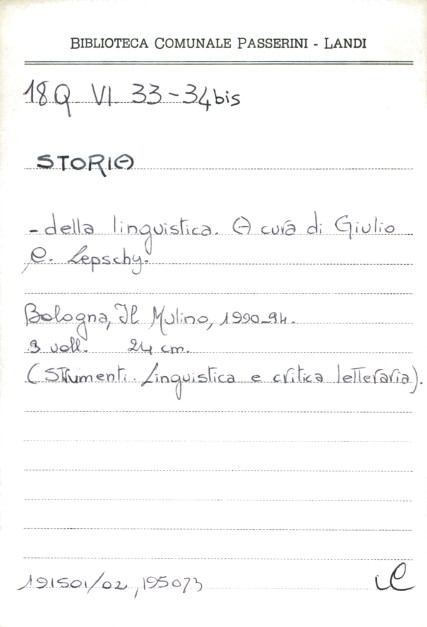 BIBLIOTECA COMUNALE PASSERINI - LANDI
18Q VI 33-34bis
STORIA
- della linguistica. A cura di Giulio
C. Lepschy.
Bologna, Il Mulino, 1990-94.
3 voll. 24 cm.
(Strumenti. Linguistica e critica letteraria).
191501/02, 195073